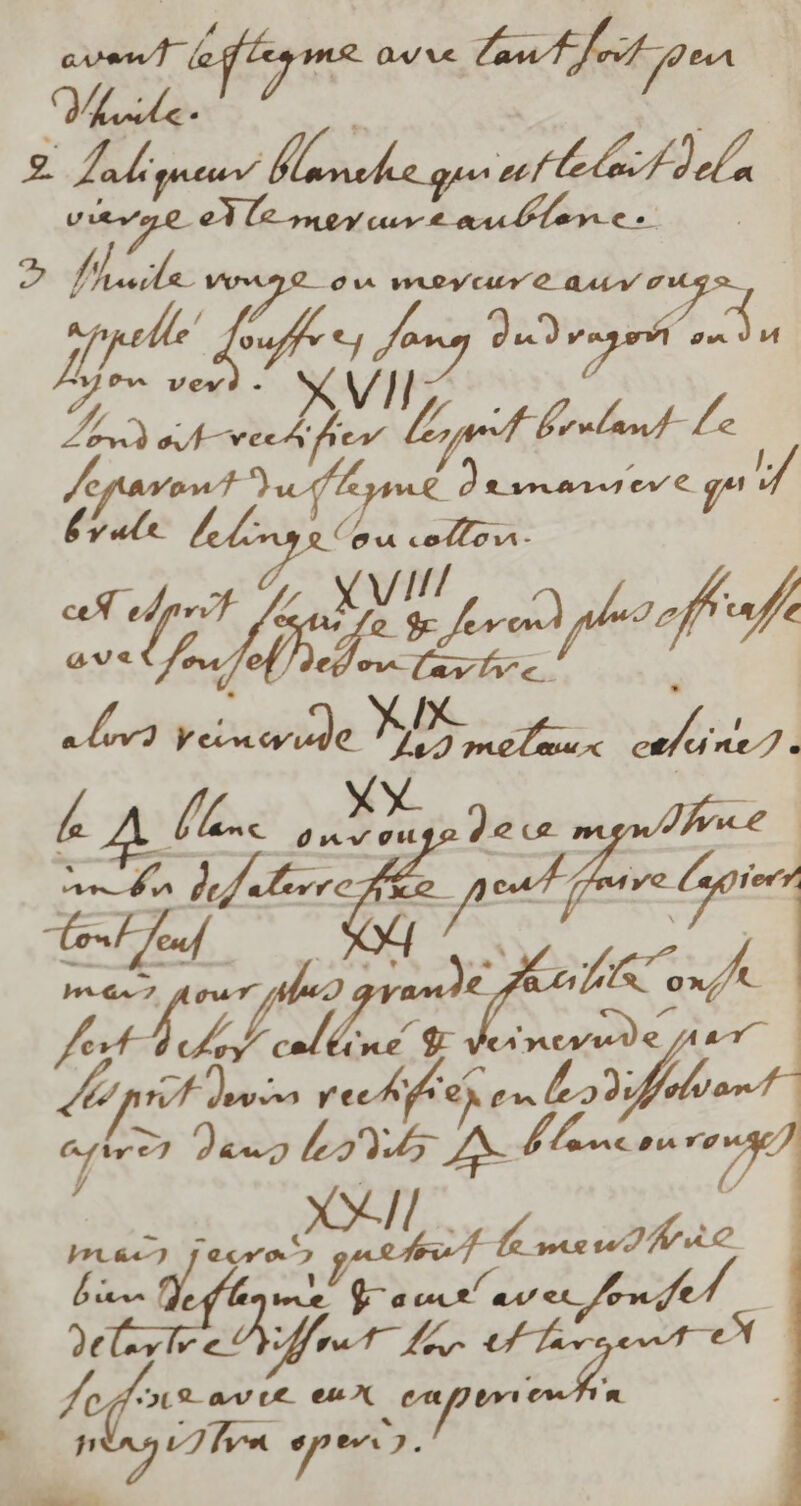 avant leflegme avec tant soit peu
d'huile.
2 La liqueur blanche qui est le lait de la
vierge est le mercure au blanc.
3 l'huile rouge ou mercure au rouge,
appellé souffre, sang du dragon ou du
Lyon verd.
XVII
L'on doit rectifier l'esprit brulant le
separant du flegme de maniere qu'il
brule le linge ou cotton.
XVIII
cet esprit s'éguise & se rend plus efficasse
avec son sel de son tartre
XIX
alors reincrude les metaux calcinés.
XX
le 🜍 blanc ou rouge de ce menstrue
imbu de sa terre fixe peut faire la pierre
tout seul
XXI
mais pour plus grande facilité on se
sert de l'or calciné & reincrudé par
l'esprit de vin rectifié, en les dissolvant
après dans les dits 🜍 blanc ou rouges
XXII
mais je crois que tout le menstrue
bien deflegmé & acué avec son sel
de tartre dissout l'or et l'argent et
se fixe avec eux experientia
magistra operis.